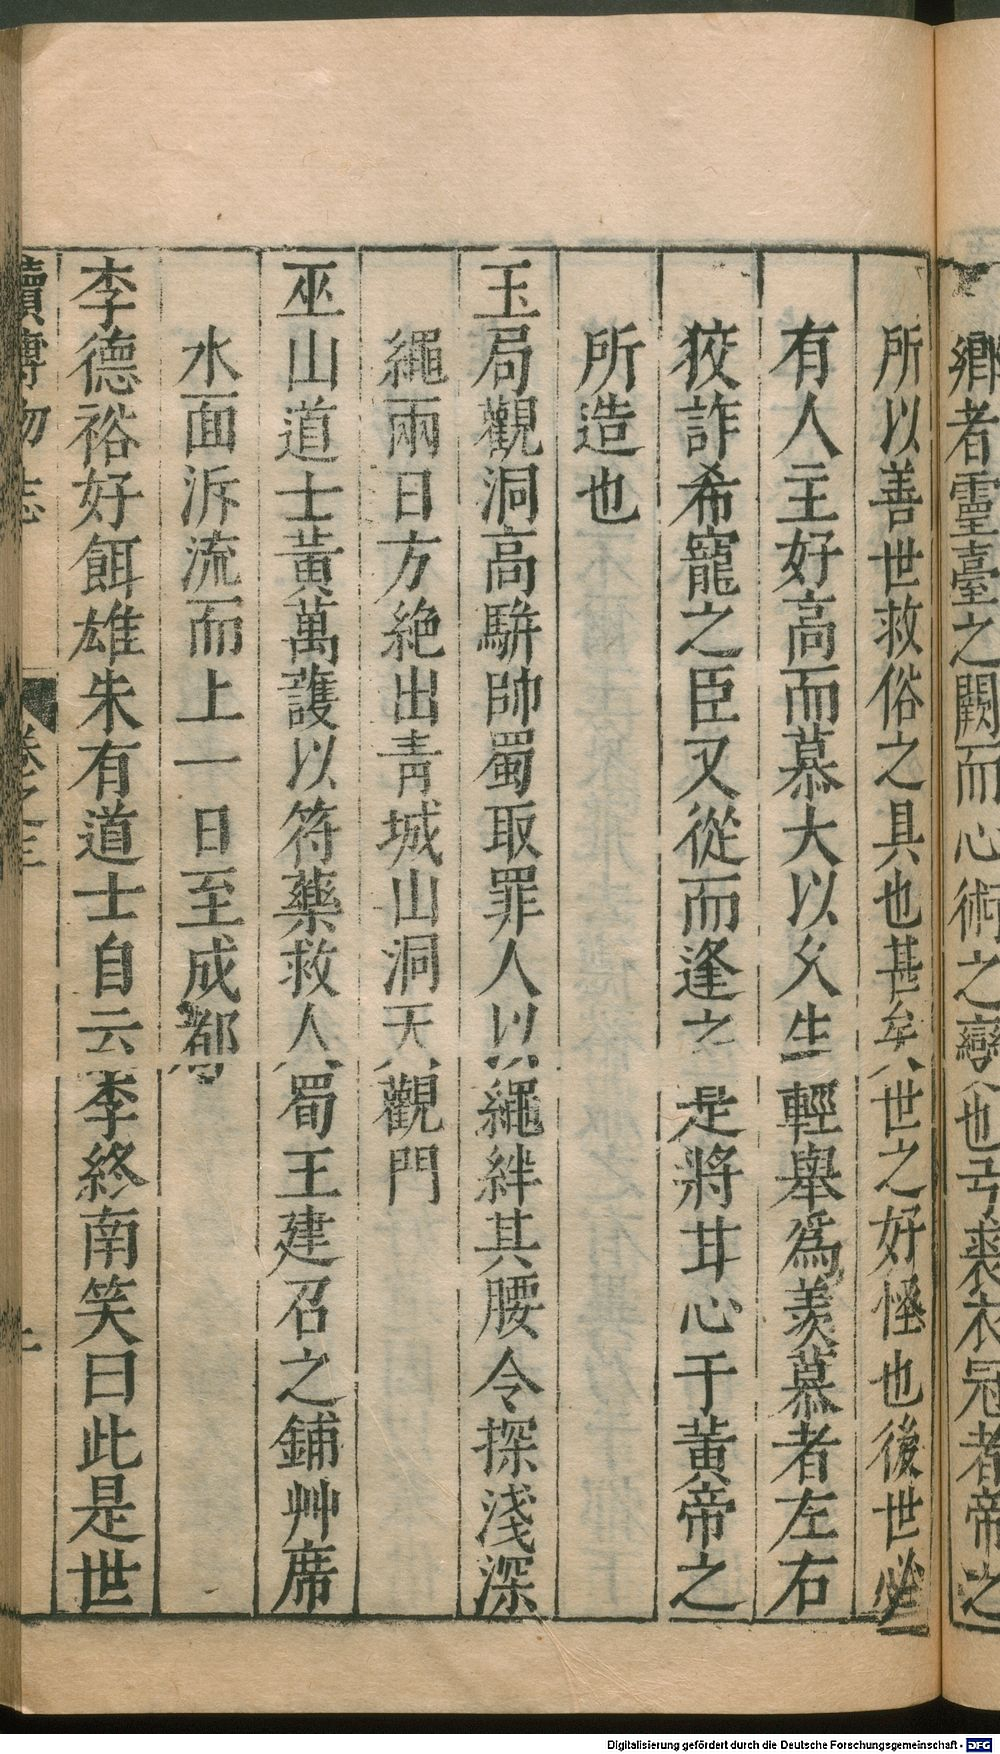 卿者靈臺之闕而心術之變也弓裘衣冠者帝之
所以善世救俗之具也甚矣世之好怪也後世必
有人主好高而慕大以久生輕舉爲羡慕者左右
狡詐希寵之臣又從而逢之是將甘心于黃帝之
所造也
玉局觀洞高駢帥蜀取罪人以繩絆其腰令探淺深
繩兩日方絶出青城山洞天觀門
巫山道士黃萬護以符藥救人蜀王建召之鋪艸席
水面泝流而上一日至成都
李德裕好餌雄朱有道士自云李終南笑曰此是世
續博物志
卷之三
Digitalisierung gefördert durch die Deutsche Forschungsgemeinschaft - DFG